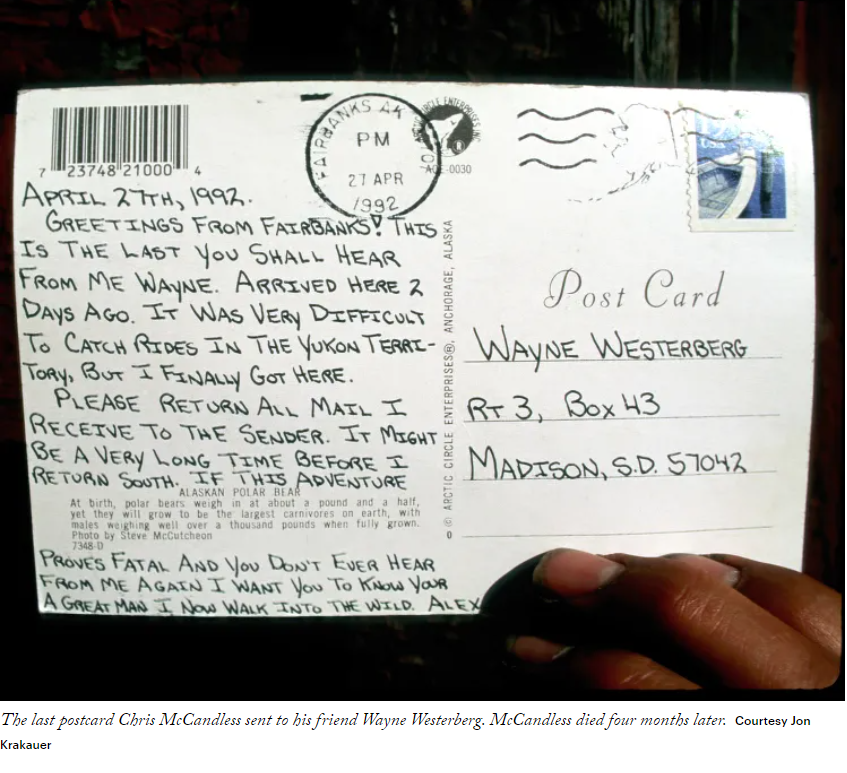 7 23748 21000 4
FAIRBANKS AK
PM
27 APR
1992
-0030
USA
APRIL 27TH, 1992.
GREETINGS FROM FAIRBANKS! THIS
IS THE LAST YOU SHALL HEAR
FROM ME WAYNE. ARRIVED HERE 2
DAYS AGO. IT WAS VERY DIFFICULT
TO CATCH RIDES IN THE YUKON TERRI-
TORY, BUT I FINALLY GOT HERE.
PLEASE RETURN ALL MAIL I
RECEIVE TO THE SENDER. IT MIGHT
BE A VERY LONG TIME BEFORE I
RETURN SOUTH. IF THIS ADVENTURE
ALASKAN POLAR BEAR
At birth, polar bears weigh in at about a pound and a half,
yet they will grow to be the largest carnivores on earth, with
males weighing well over a thousand pounds when fully grown.
Photo by Steve McCutcheon
7348-D
PROVES FATAL AND YOU DON'T EVER HEAR
FROM ME AGAIN I WANT YOU TO KNOW YOUR
A GREAT MAN I NOW WALK INTO THE WILD. ALEX
© ARCTIC CIRCLE ENTERPRISES®, ANCHORAGE, ALASKA
0
Post Card
WAYNE WESTERBERG
RT 3, BOX 43
MADISON, S.D. 57042
The last postcard Chris McCandless sent to his friend Wayne Westerberg. McCandless died four months later. Courtesy Jon
Krakauer